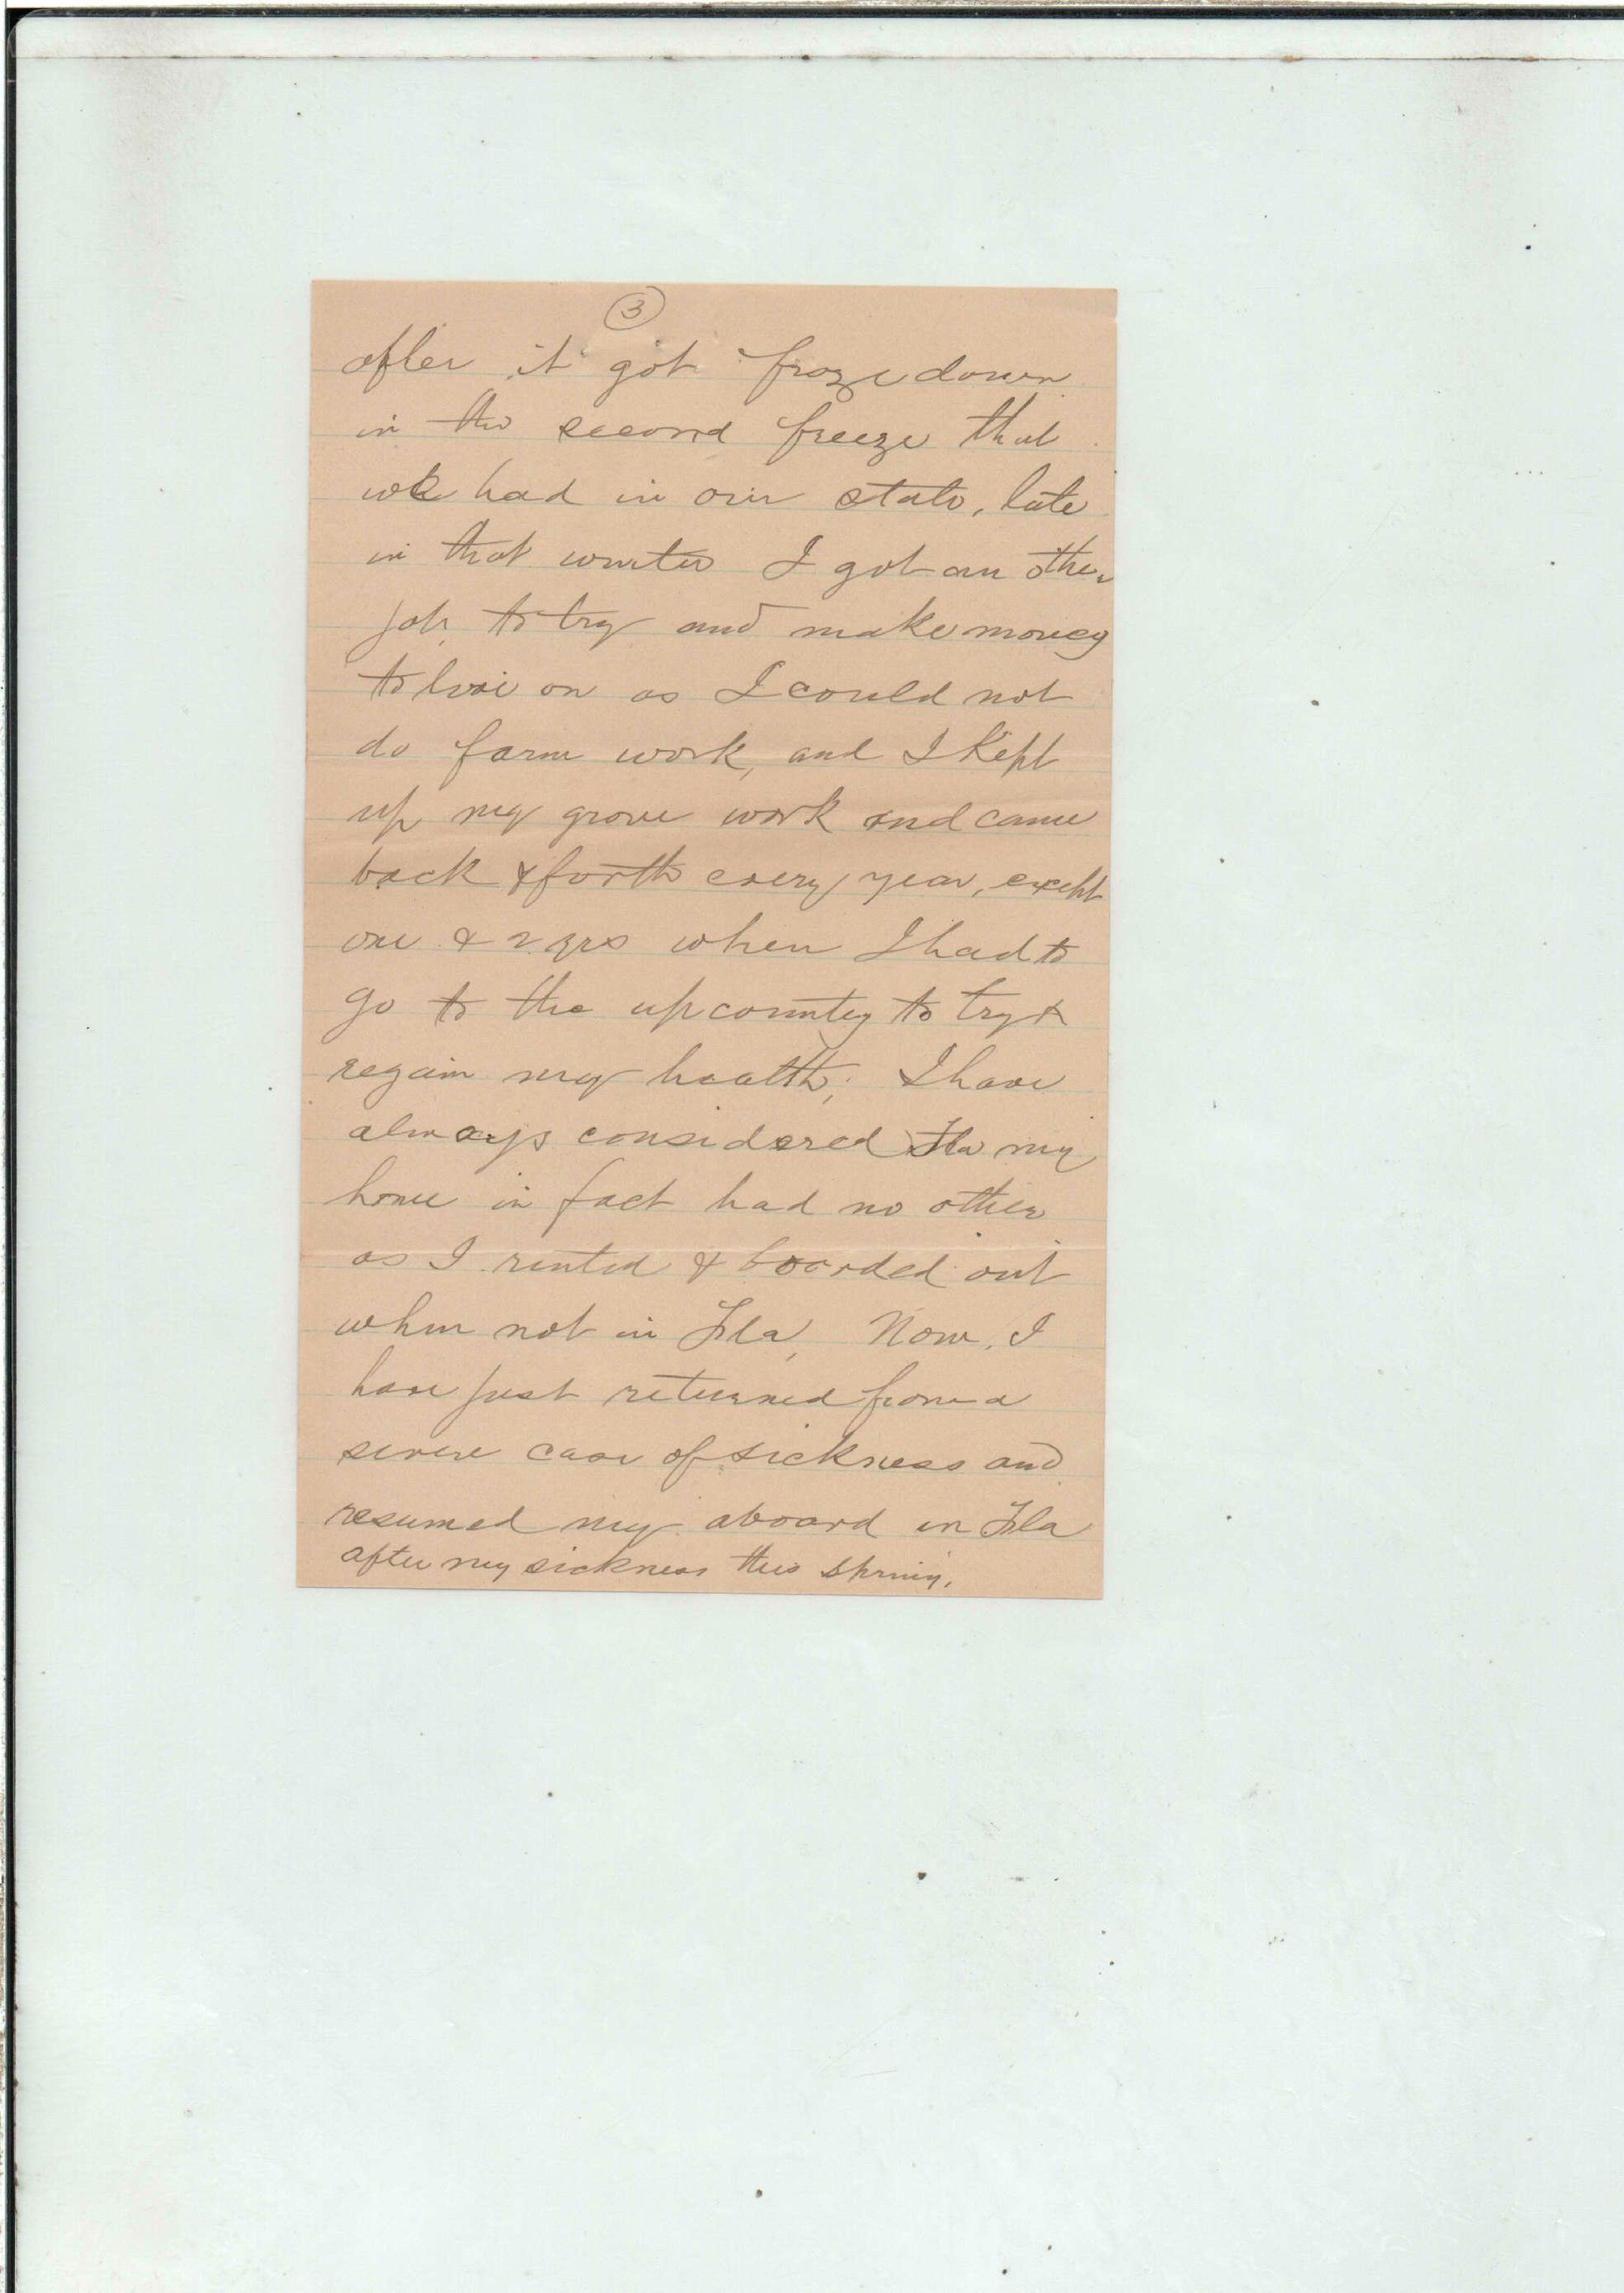 3
after it got froze down
in the second freeze that
we had in our state, late
in that winter I got an other
job, to try and make money
to live on as I could not
do farm work, and I Kept
up my grove work and came
back & forth every year, except
one & 2 yrs when I had to
go to the upcountry to try &
regain my health; I have
always considered Fla my
home in fact had no other
as I rented & boarded out
when not in Fla, Now, I
have just returned from a
severe case of sickness and
resumed my aboard in Fla
after my sickness this spring.